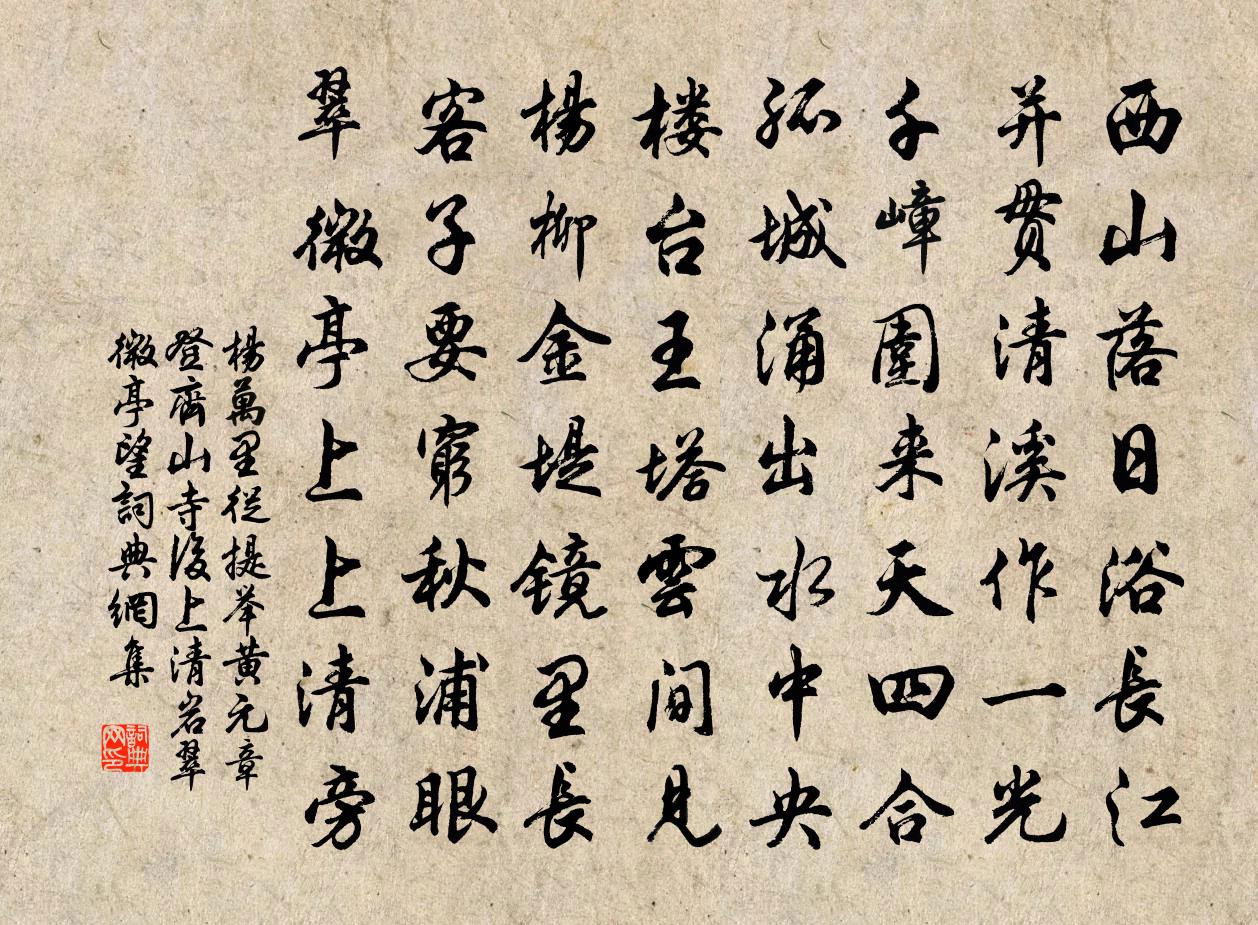 西山落日浴長江
并贯清溪作一光
千嶂圍来天四合
孤城涌出水中央
楼台王塔雲间見
楊柳金堤镜里長
客子要窮秋浦眼
翠微亭上上清旁
楊萬里從提举黄元章
登齊山寺後上清岩翠
微亭望詞典網集
詞典网印